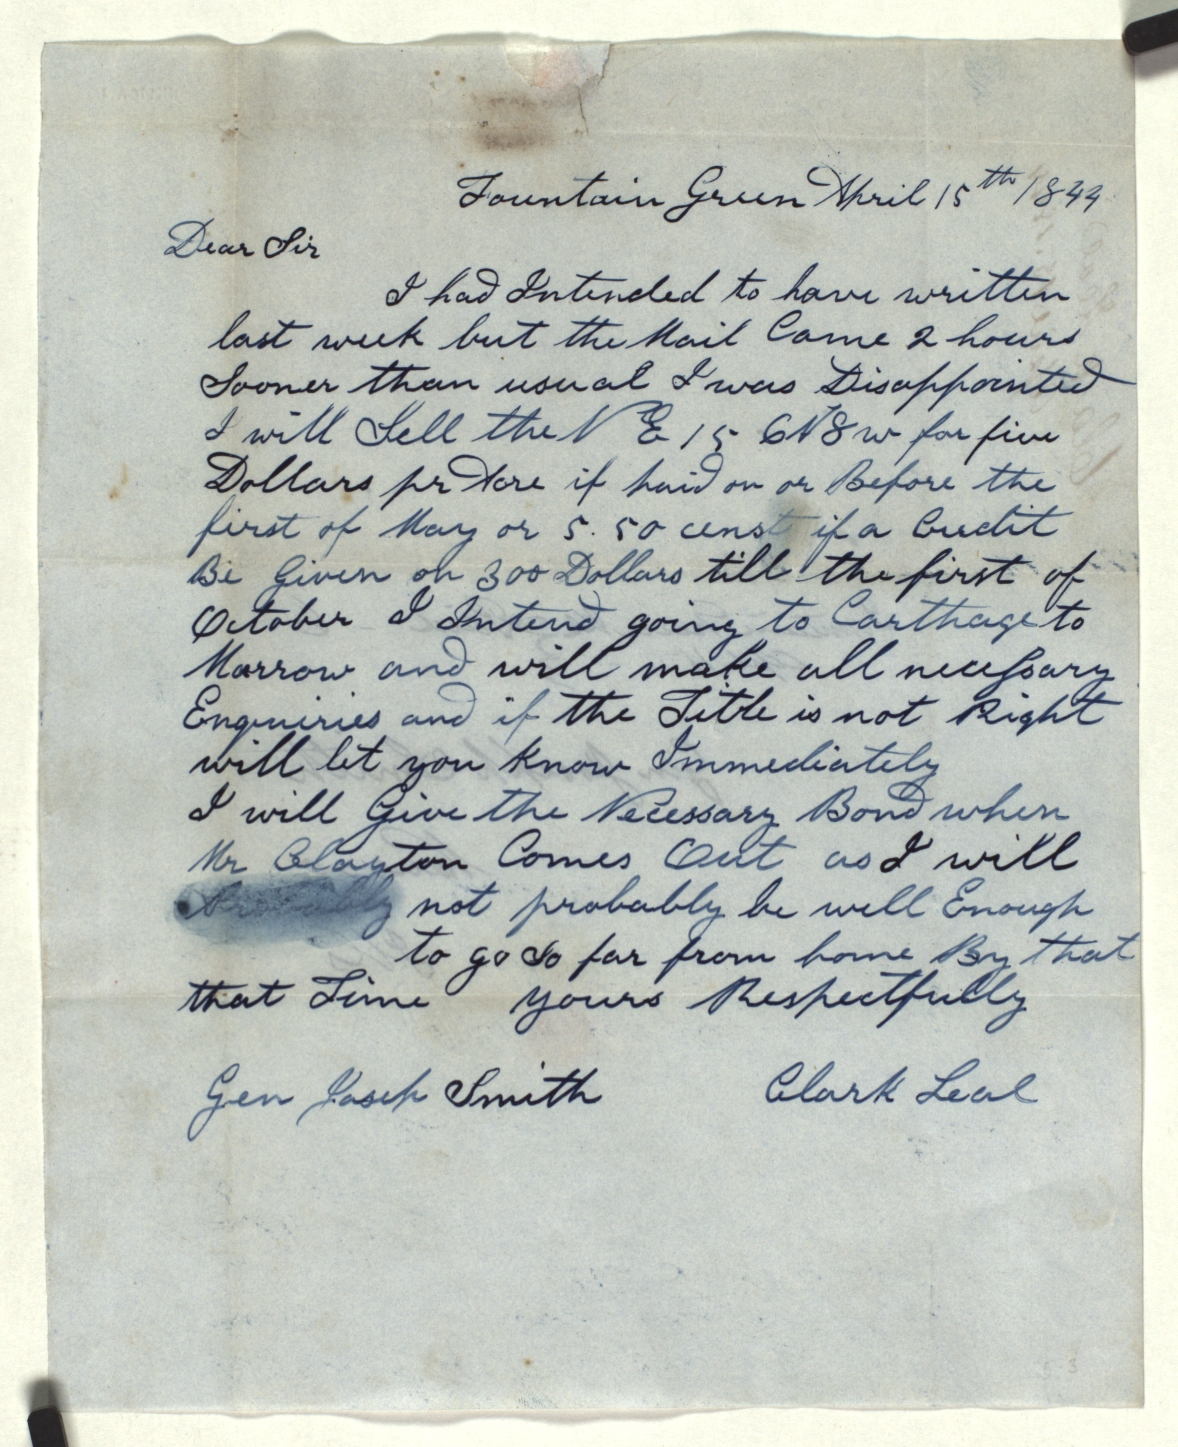 Fountain Green April 15th 1844
Dear Sir
I had Intended to have written
last week but the Mail Came 2 hours
Sooner than usual I was Disappointed
I will Sell the N E 15 6N 8w for five
Dollars pr Acre if paid on or Before the
first of May or 5.50 censt if a Credit
Be Given on 300 Dollars till the first of
October I Intend going to Carthage to
Morrow and will make all necessary
Enquiries and if the Title is not Right
will let you know Immediately
I will Give the Necessary Bond when
Mr Clayton Comes Out as I will
not probably be well Enough
to go So far from home By that
that Time yours Respectfully
Gen Joseph Smith Clark Leal